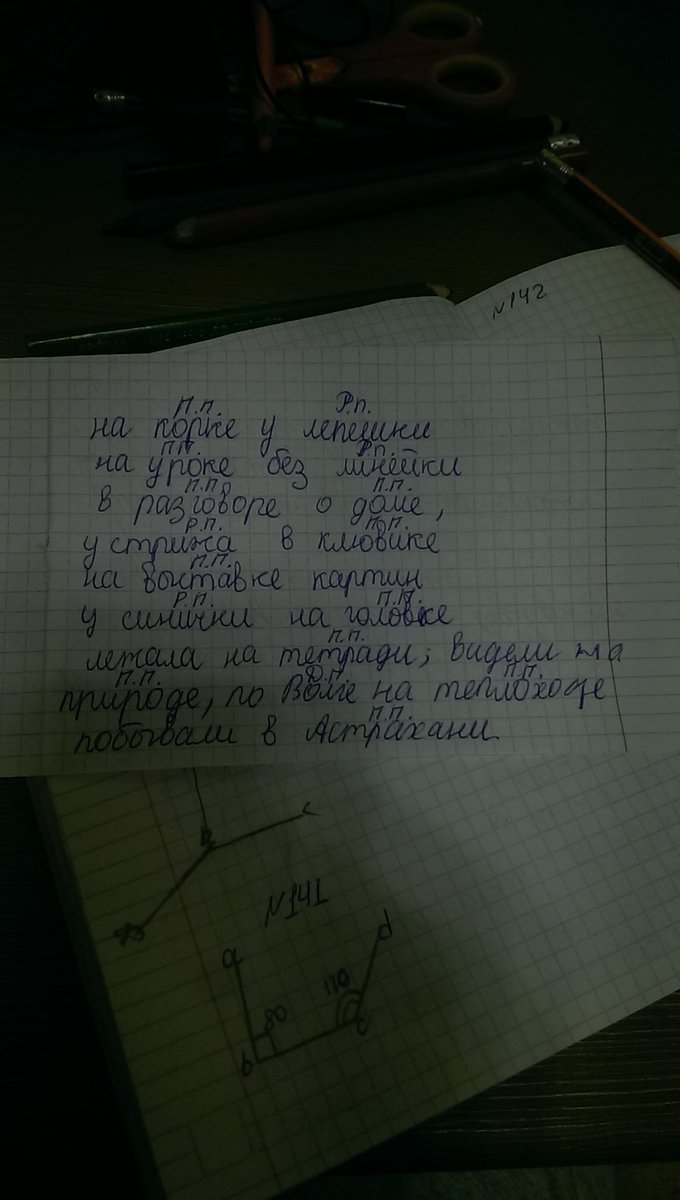 №142
П.п. Р.п.
на корке у лепешки
П.П. Р.п.
на уроке без линейки
П.П. П.П.
в разговоре о доме,
Р.П. П.П.
у стрижа в клювике
П.П.
на выставке картин
Р.П. П.П.
у синички на головке
П.П.
лежала на тетради; видели на
П.П. Д.П. П.П.
природе, по Волге на теплоходе
П.П.
побывали в Астрахани
c
№141
a d
90 110
b c